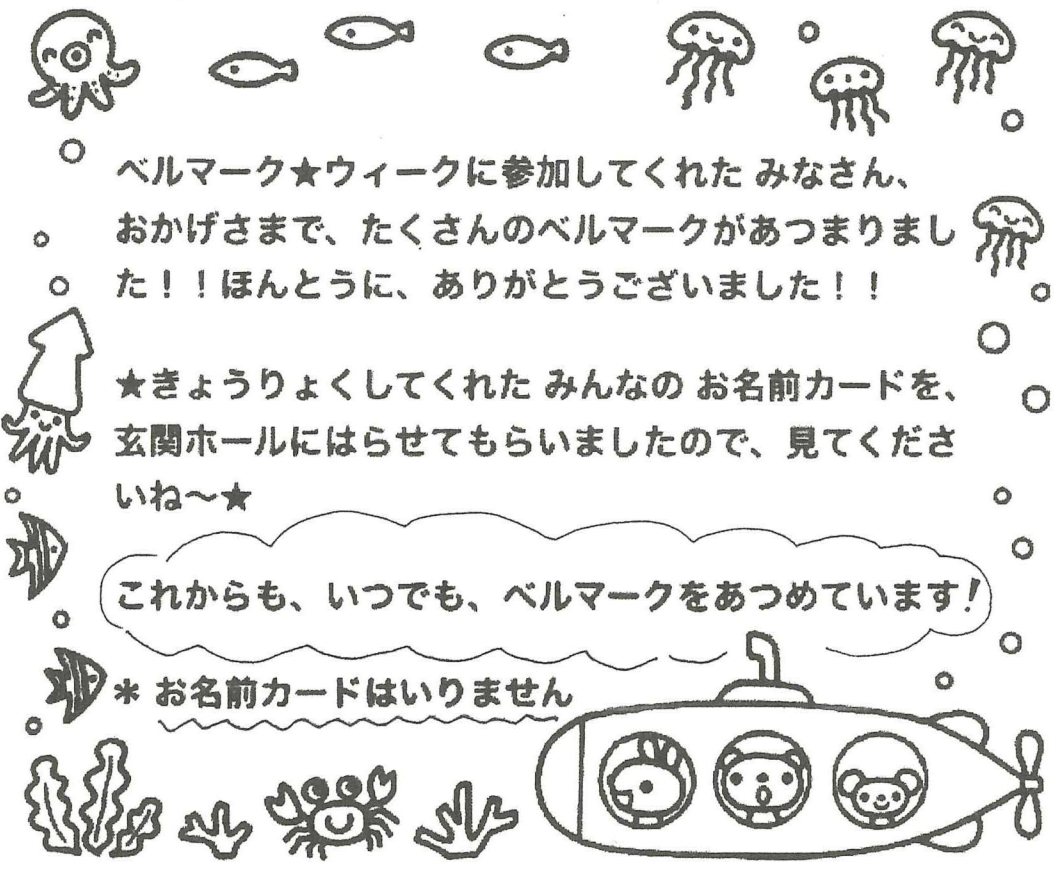 ベルマーク★ウィークに参加してくれた みなさん、
おかげさまで、たくさんのベルマークがあつまりまし
た！！ほんとうに、ありがとうございました！！
★きょうりょくしてくれた みんなの お名前カードを、
玄関ホールにはらせてもらいましたので、見てくださ
いね～★
これからも、いつでも、ベルマークをあつめています!
＊ お名前カードはいりません